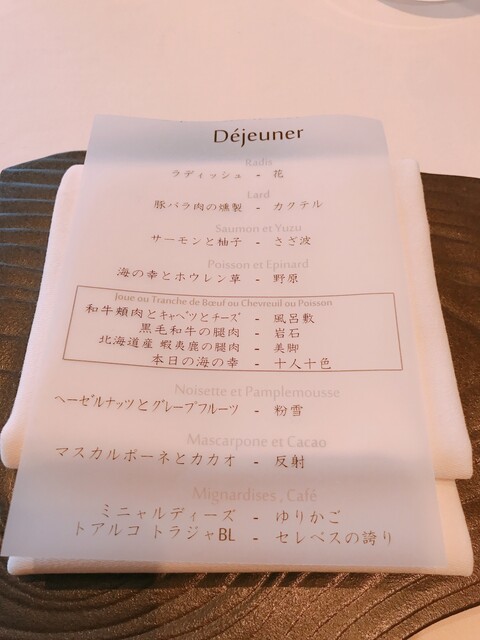 Déjeuner
Radis
ラディッシュ - 花
Lard
豚バラ肉の燻製 - カクテル
Saumon et Yuzu
サーモンと柚子 - さざ波
Poisson et Epinard
海の幸とホウレン草 - 野原
Joue ou Tranche de Bœuf ou Chevreuil ou Poisson
和牛頬肉とキャベツとチーズ - 風呂敷
黒毛和牛の腿肉 - 岩石
北海道産 蝦夷鹿の腿肉 - 美脚
本日の海の幸 - 十人十色
Noisette et Pamplemousse
ヘーゼルナッツとグレープフルーツ - 粉雪
Mascarpone et Cacao
マスカルポーネとカカオ - 反射
Mignardises , Café
ミニャルディーズ - ゆりかご
トアルコ トラジャBL - セレベスの誇り